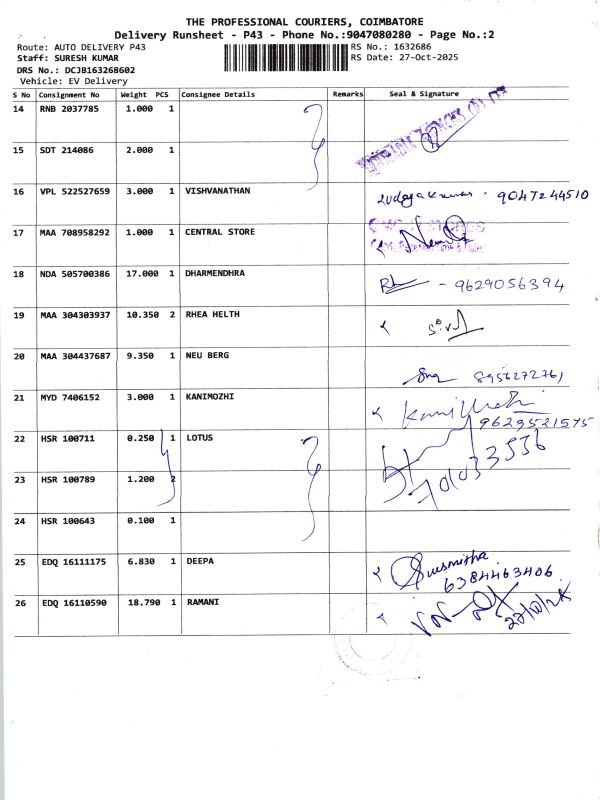 THE PROFESSIONAL COURIERS, COIMBATORE
Delivery Runsheet - P43 - Phone No.:9047080280 - Page No.:2
Route: AUTO DELIVERY P43 RS No.: 1632686
Staff: SURESH KUMAR RS Date: 27-Oct-2025
DRS No.: DCJB163268602
Vehicle: EV Delivery
S No Consignment No Weight PCS Consignee Details Remarks Seal & Signature
14 RNB 2037785 1.000 1
15 SDT 214086 2.000 1
16 VPL 522527659 3.000 1 VISHVANATHAN
9047244510
17 MAA 708958292 1.000 1 CENTRAL STORE
18 NDA 505700386 17.000 1 DHARMENDHRA
- 9629056394
19 MAA 304303937 10.350 2 RHEA HELTH
20 MAA 304437687 9.350 1 NEU BERG
8956272761
21 MYD 7406152 3.000 1 KANIMOZHI
9629521575
22 HSR 100711 0.250 1 LOTUS
23 HSR 100789 1.200 2
24 HSR 100643 0.100 1
25 EDQ 16111175 6.830 1 DEEPA
Susmitha
6384463406
26 EDQ 16110590 18.790 1 RAMANI